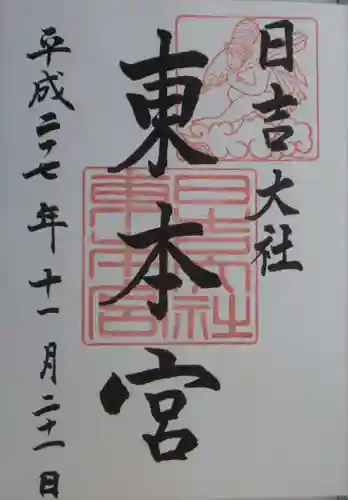 日吉大社
東本宮
平成二十七年十一月二十一日
日吉大社
東本宮